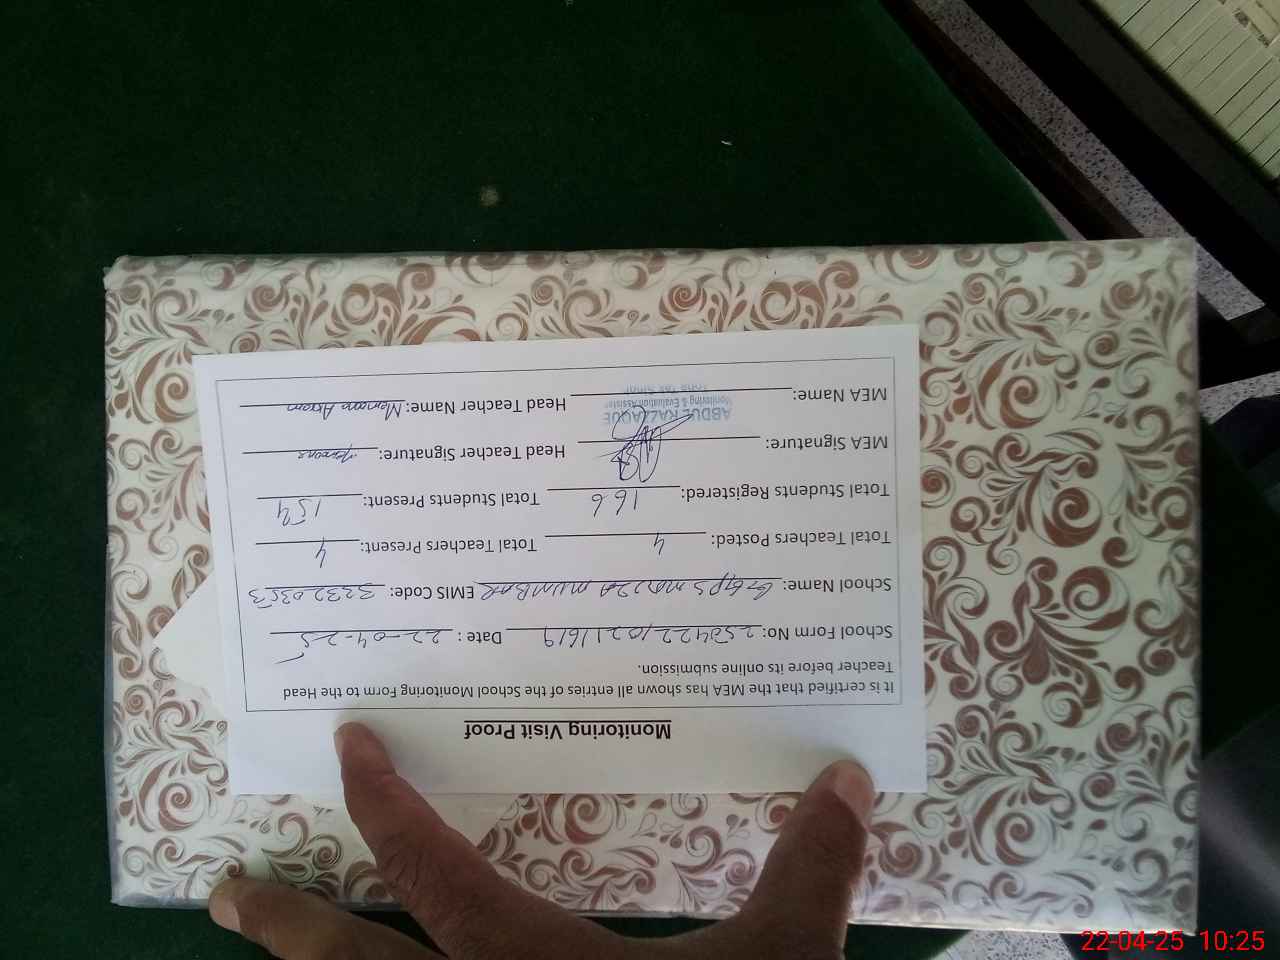 Monitoring Visit Proof
It is certified that the MEA has shown all entries of the School Monitoring Form to the Head
Teacher before its online submission.
School Form No: 250422102211619 Date : 22-04-25
School Name: GGPS MOZZA MUMBAR EMIS Code: 33320353
Total Teachers Posted: 4 Total Teachers Present: 4
Total Students Registered: 166 Total Students Present: 154
MEA Signature: Head Teacher Signature:
ABDUL RAZZAQUE
Monitoring & Evaluation Assistant
MEA Name: Head Teacher Name: Mariam Akram
22-04-25 10:25